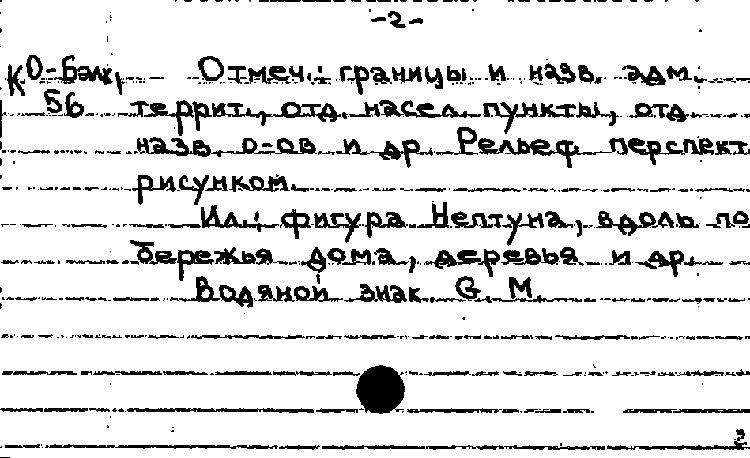 -2-
К О-Бэлк, Отмеч.: границы и назв. адм.
56 террит., отд. насел. пункты, отд.
назв. о-ов и др. Рельеф перспект
рисунком.
Ил.: фигура Нептуна, вдоль по
бережья дома, деревья и др.
Водяной знак G. M.